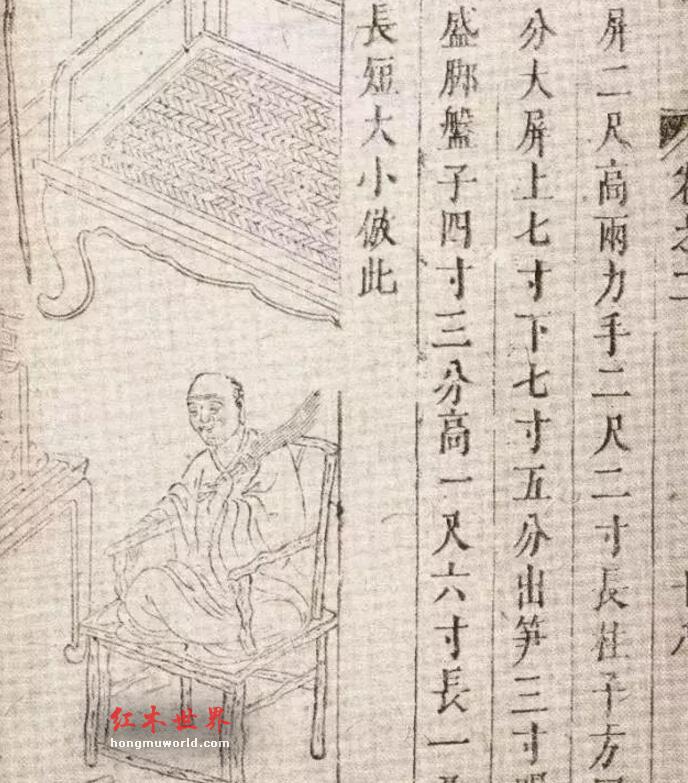 卷之二
屏二尺高兩力手二尺二寸長柱子方
分大屏上七寸下七寸五分出笋三寸
盛脚盤子四寸三分高一尺六寸長一
長短大小倣此
红木世界
hongmuworld.com